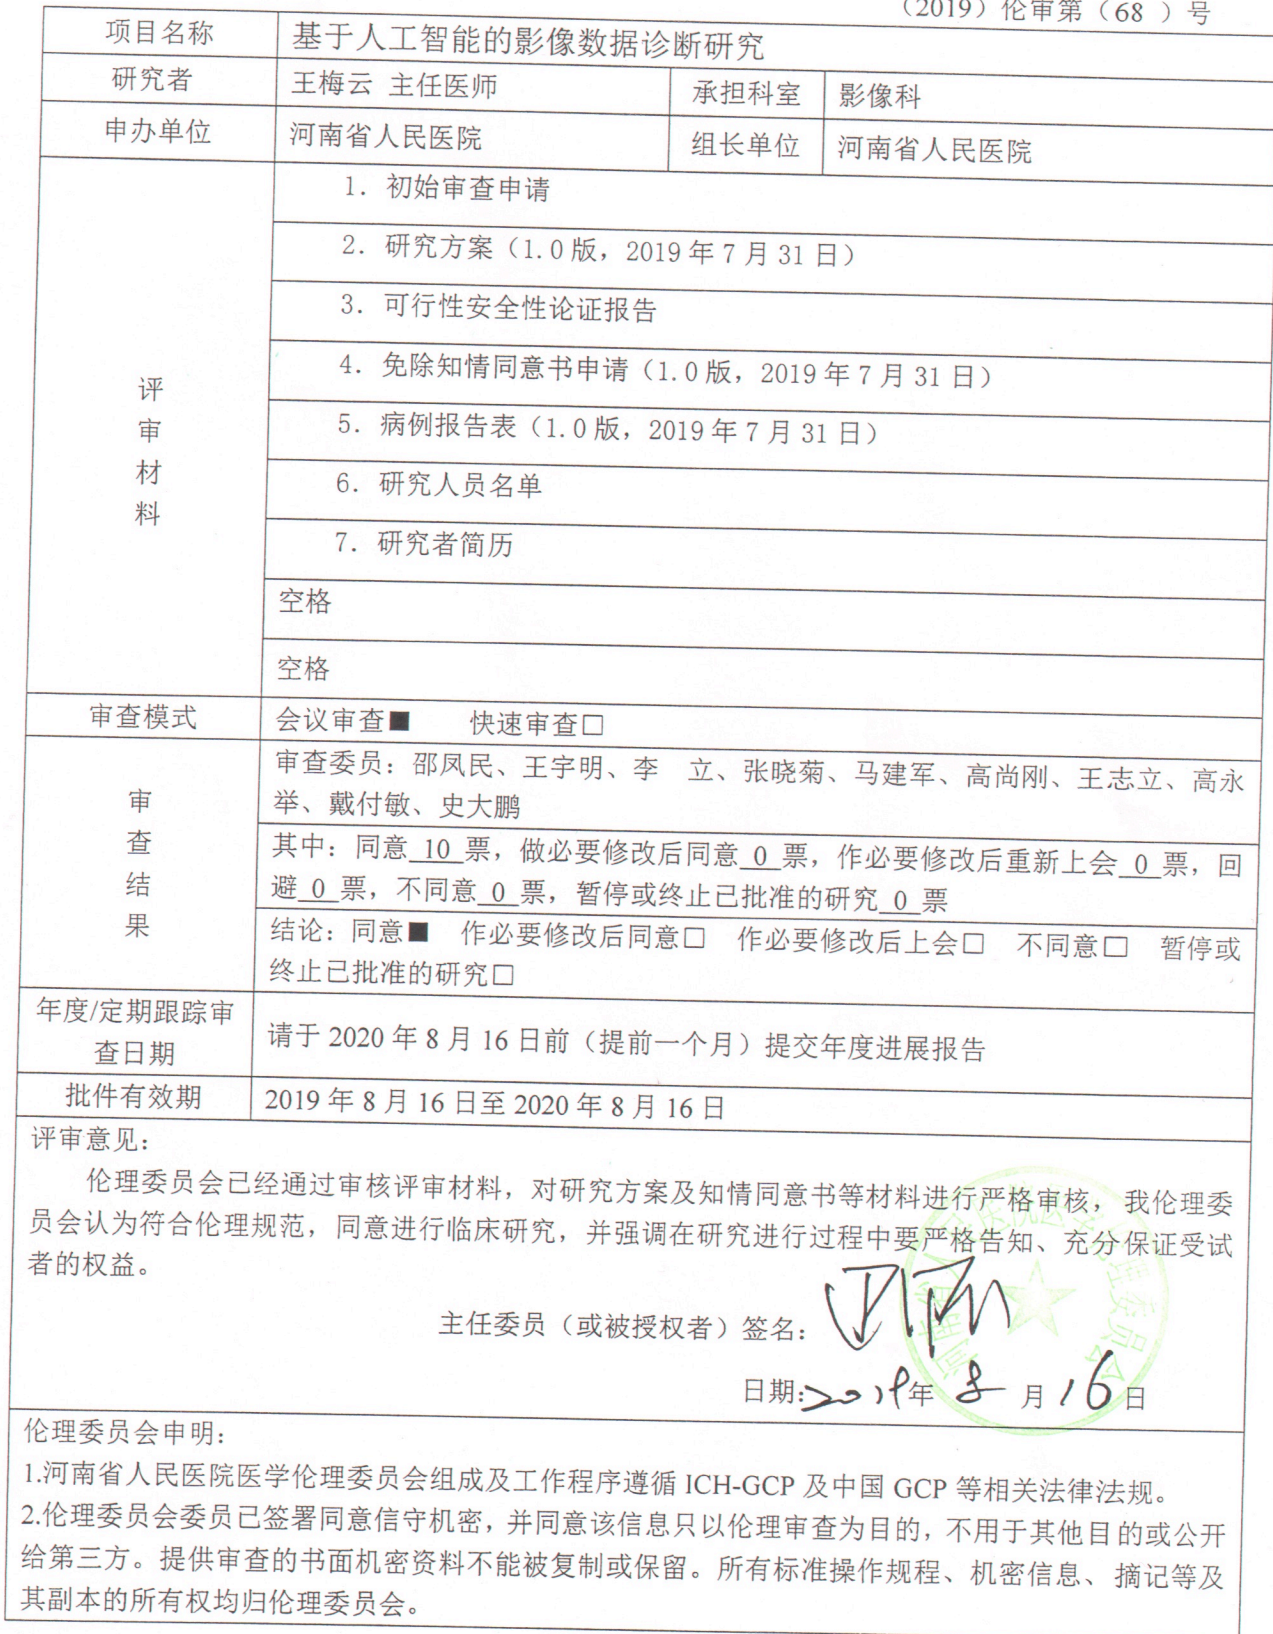 （2019）伦审第（68 ）号
项目名称 基于人工智能的影像数据诊断研究
研究者 王梅云 主任医师 承担科室 影像科
申办单位 河南省人民医院 组长单位 河南省人民医院
评
审
材
料
1. 初始审查申请
2. 研究方案（1.0版，2019年7月31日）
3. 可行性安全性论证报告
4. 免除知情同意书申请（1.0版，2019年7月31日）
5. 病例报告表（1.0版，2019年7月31日）
6. 研究人员名单
7. 研究者简历
空格
空格
审查模式 会议审查■ 快速审查□
审
查
结
果
审查委员：邵凤民、王宇明、李 立、张晓菊、马建军、高尚刚、王志立、高永
举、戴付敏、史大鹏
其中：同意 10 票，做必要修改后同意 0 票，作必要修改后重新上会 0 票，回
避 0 票，不同意 0 票，暂停或终止已批准的研究 0 票
结论：同意■ 作必要修改后同意□ 作必要修改后上会□ 不同意□ 暂停或
终止已批准的研究□
年度/定期跟踪审
查日期
请于 2020 年 8 月 16 日前（提前一个月）提交年度进展报告
批件有效期 2019 年 8 月 16 日至 2020 年 8 月 16 日
评审意见：
伦理委员会已经通过审核评审材料，对研究方案及知情同意书等材料进行严格审核，我伦理委
员会认为符合伦理规范，同意进行临床研究，并强调在研究进行过程中要严格告知、充分保证受试
者的权益。
主任委员（或被授权者）签名：
日期:2019年 8 月 16 日
河南省人民医院医学伦理委员会
伦理委员会申明：
1.河南省人民医院医学伦理委员会组成及工作程序遵循 ICH-GCP 及中国 GCP 等相关法律法规。
2.伦理委员会委员已签署同意信守机密，并同意该信息只以伦理审查为目的，不用于其他目的或公开
给第三方。提供审查的书面机密资料不能被复制或保留。所有标准操作规程、机密信息、摘记等及
其副本的所有权均归伦理委员会。